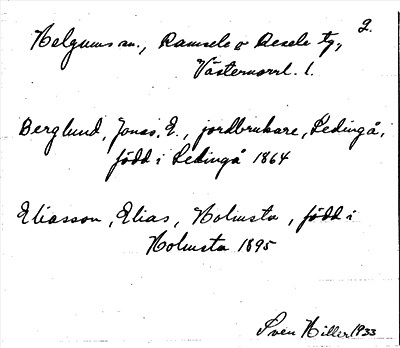 2.
Helgums sn., Ramsele o Resele tg,
Västernorrl. l.
Berglund, Jonas, E., jordbrukare, Ledingå,
född i Ledingå 1864
Eliasson, Elias, Holmsta, född i
Holmsta 1895
Sven Hiller 1933